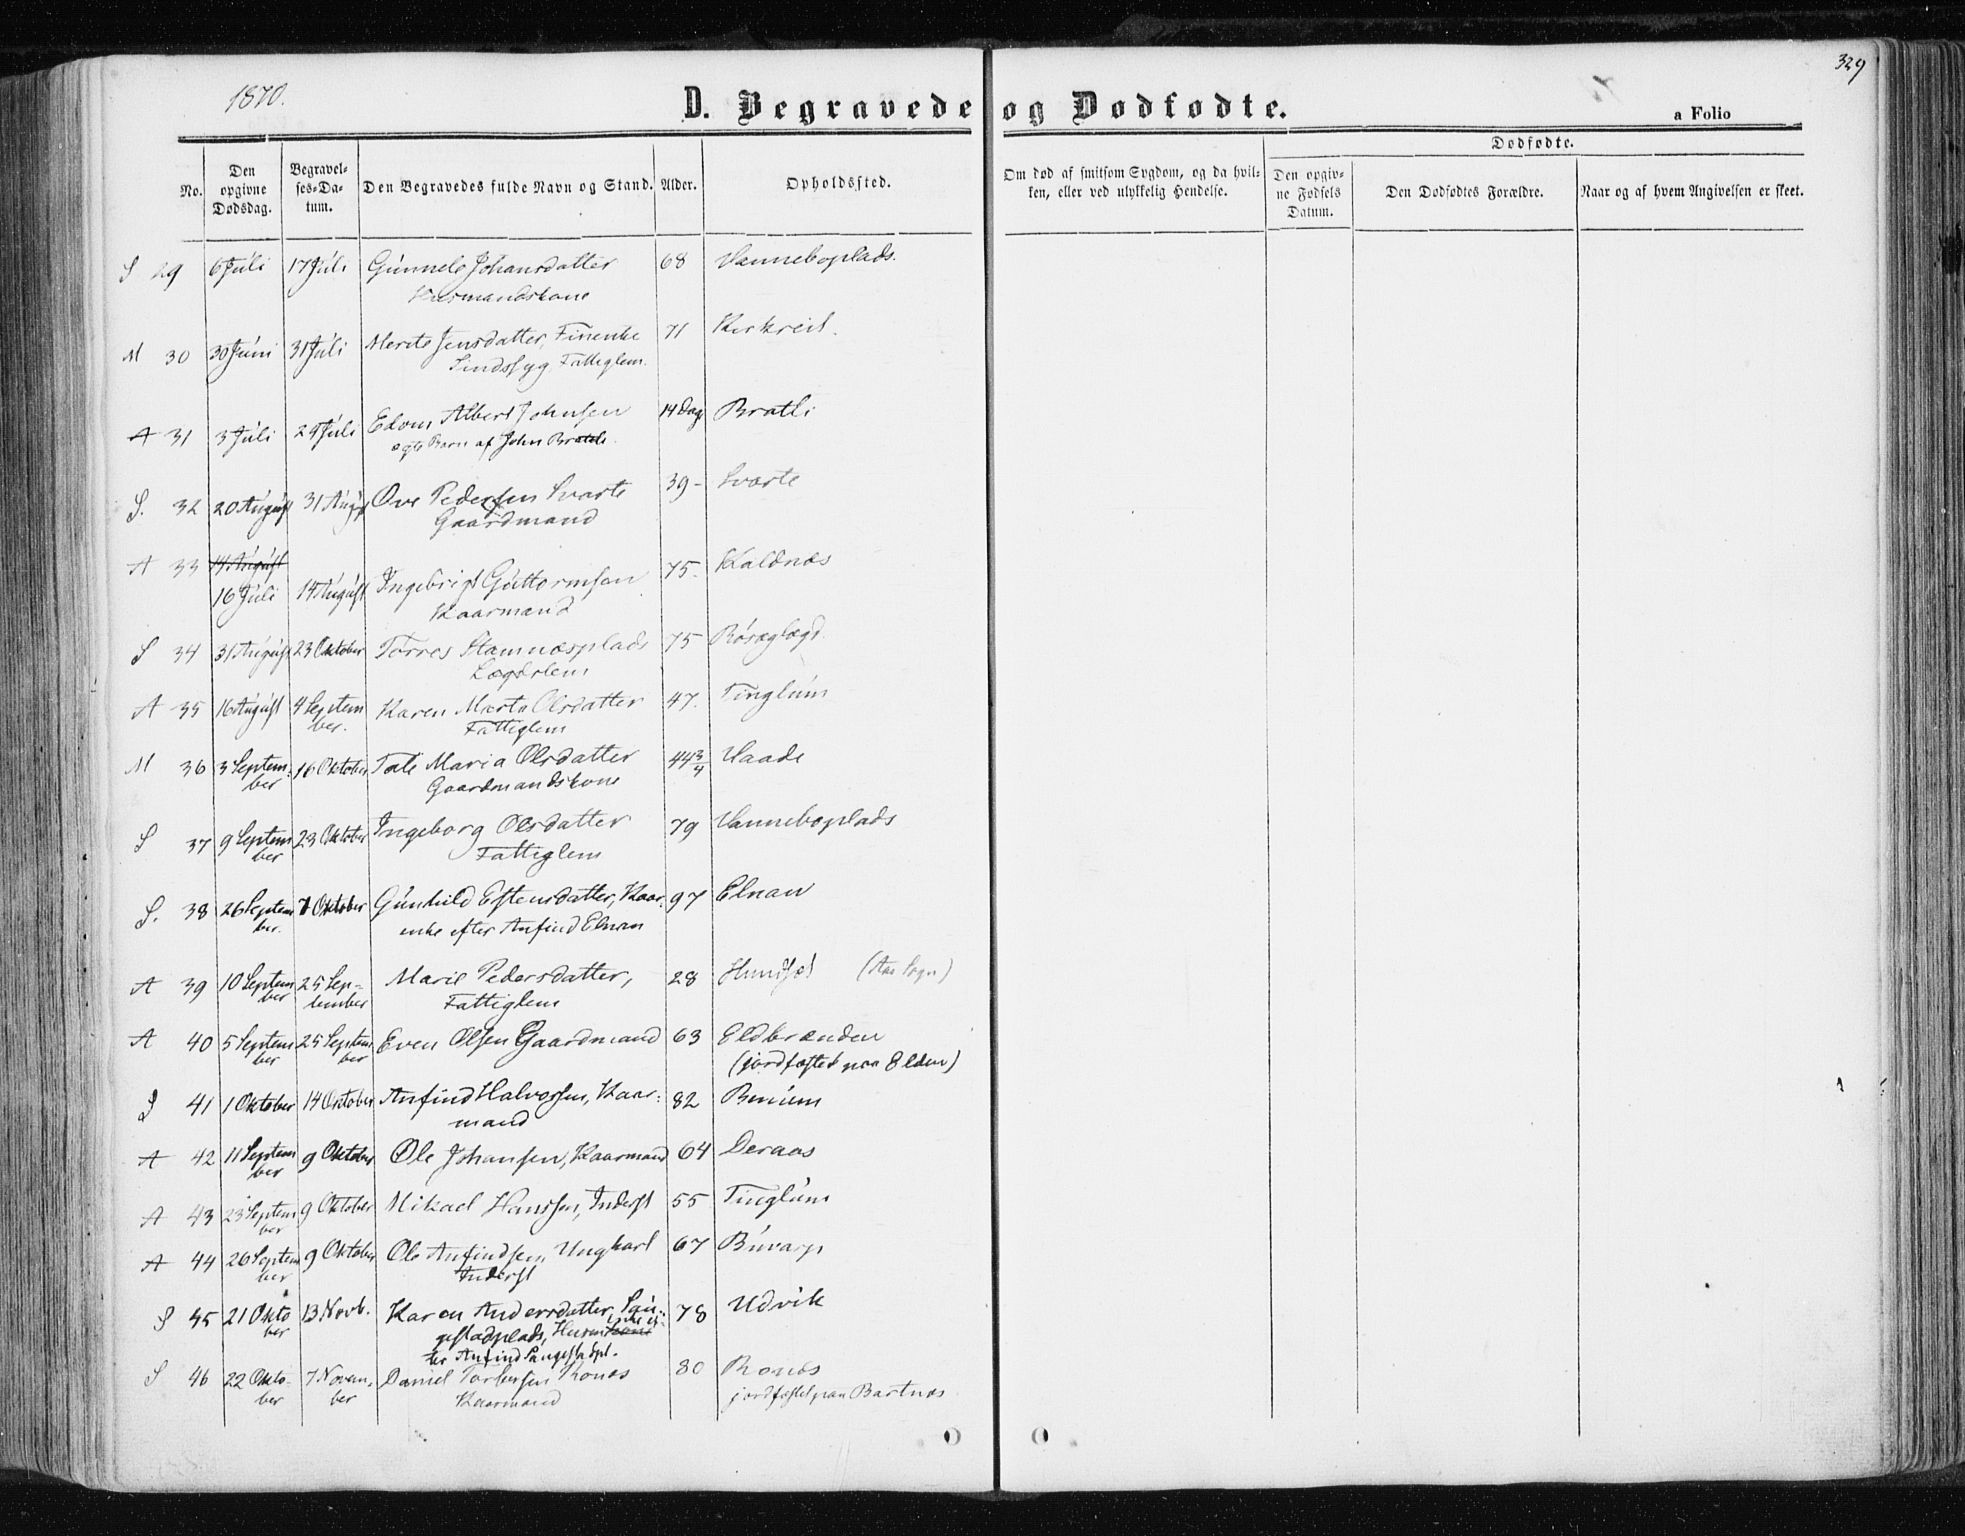 1870.
329
D. Begravede og Dødfødte.
a Folio
No.
Den opgivne Dødsdag.
Begravelses-Datum.
Den Begravedes fulde Navn og Stand.
Alder.
Opholdssted.
Om død af smitsom Sygdom, og da hvilken, eller ved ulykkelig Hendelse.
Dødfødte.
Den opgivne Fødsels Datum.
Den Dødfødtes Forældre.
Naar og af hvem Angivelsen er skeet.
S 29 6 Juli 17 Juli Gunnele Johansdatter 68 Vanneboplads.
Husmandskone
M 30 30 Juni 31 Juli Merete Jensdatter, Finenke 71 Kirkreit.
Sindssyg Fattiglem.
A 31 3 Juli 24 Juli Edom Albert Johnsen 14 Dage Bratli
egte Barn af John Bratli.
S. 32 20 August 31 Aug Ove Pedersen Svarte 39 - Svarte
Gaardmand
A 33 14 August
16 Juli 14 August Ingebrigt Guttormsen 75. Kaldnæs
Kaarmand
S 34 31 August 23 Oktober Torres Stamnæsplads 75
Lægdslem
A 35 16 August 4 September. Karen Marta Olsdatter 47. Tinglum
Fattiglem
M 36 3 September 16 Oktober Tale Maria Olsdatter 44 3/4 Vaade
Gaardmandskone
S 37 9 September 23 Oktober Ingeborg Olsdatter 79 Vanneboplads
Fattiglem
S. 38 26 September. 7 Oktober Gunhild Estensdatter, Kaar- 97 Elnan
enke efter Anfind Elnan
A 39 10 September 25 September Marie Pedersdatter, 28 (Aas Sogn)
Fattiglem
A 40 5 September 25 September Even Olsen Gaardmand 63 Eldbrænden
(jordfæstet paa Elden)
S 41 1 Oktober 14 Oktober Anfind Halvorsen, Kaar- 82
mand
A 42 11 September 9 Oktober Ole Johansen, Kaarmand 64 Deraas
A 43 23 September 9 Oktober Mikael Hanssen, Inderst 55 Tinglum
A 44 26 September 9 Oktober Ole Anfindsen, Ungkarl 67 Buvarp
Inderst
S 45 21 Oktober 13 Novb. Karen Andersdatter, Sau- 78 Udvik
gestadplads, Husm kone enke ef-
ter Anfind Saugestadpl.
S 46 22 Oktober 7 November Daniel Torbersen Ronæs 80 Ronæs
Kaarmand jordfæstet paa Bartnæs